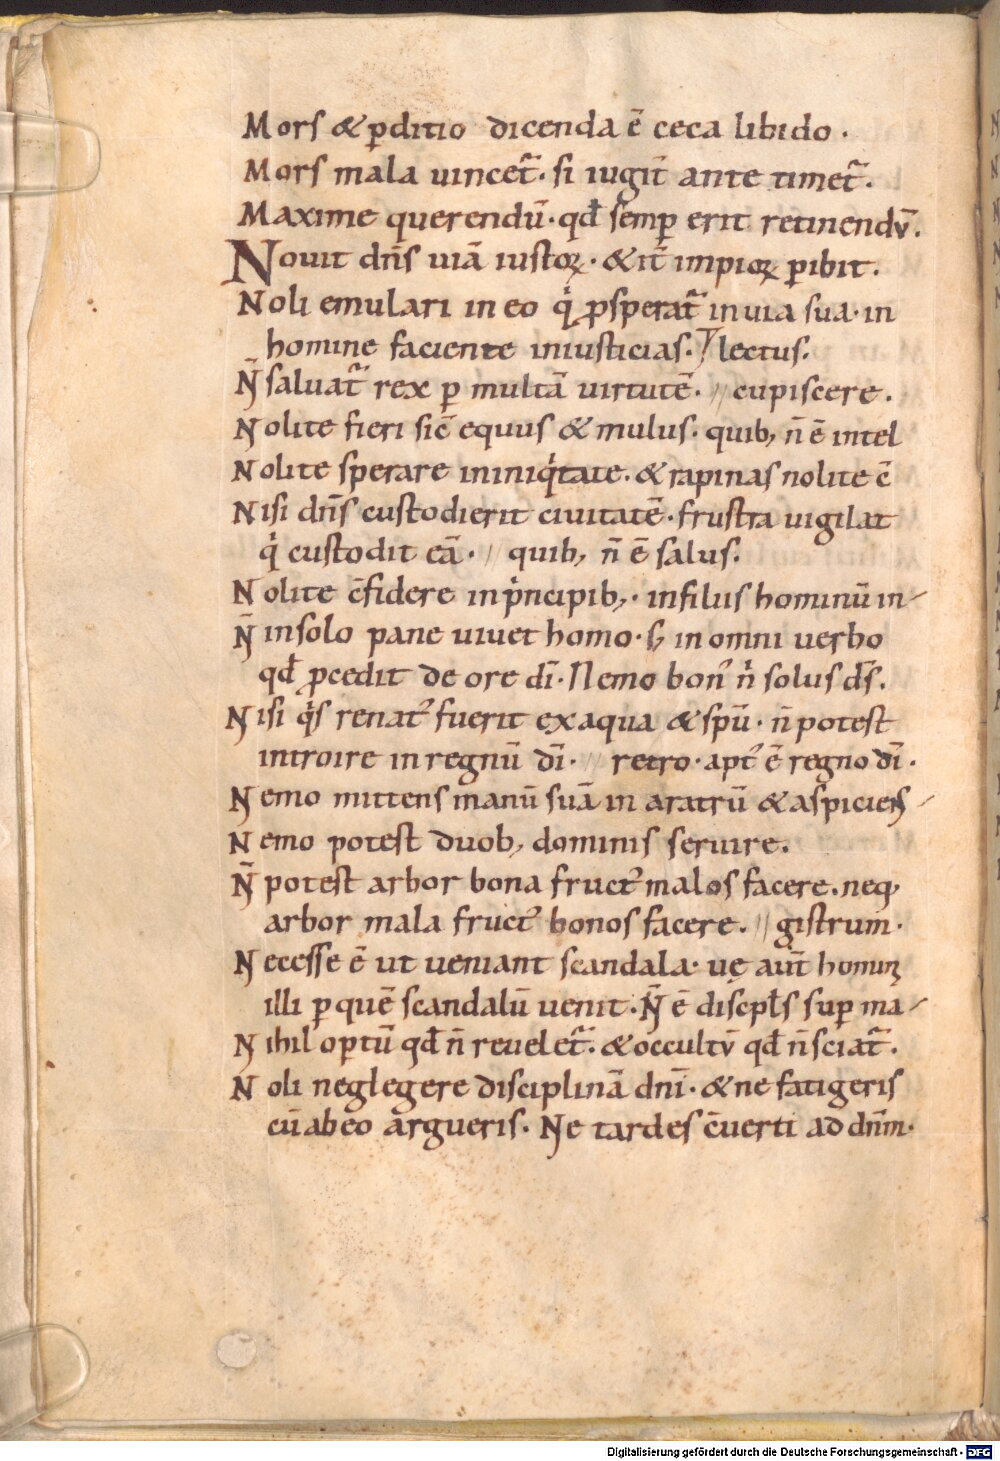 Mors & ꝑditio dicenda ē ceca libido .
Mors mala uincet᷑. si iugit̄ ante timet᷑.
Maxime querendū. qđ semꝑ erit retinendv̄.
Nouit dn̄s uiā iustoꝝ. & it̄ impioꝝ ꝑibit.
Noli emulari in eo qͥ ꝓsperat᷑ in uia sua. in
homine faciente iniusticias. lectus.
Ñ saluat᷑ rex ꝑ multā uirtutē. // cupiscere.
Nolite fieri sic̄ equus & mulus. quib; n̄ ē intel
Nolite sperare in iniqͥtate. & rapinas nolite c̄
Nisi dn̄s custodierit ciuitatē. frustra uigilat
qͥ custodit eā. // quib; n̄ ē salus.
Nolite c̄fidere in pͥncipib;. in filiis hominū in
Ñ in solo pane uiuet homo. s; in omni uerbo
qđ ꝓcedit de ore dī. Nemo bonꝰ nͥ solus ds̄.
Nisi qͥs renatꝰ fuerit ex aqua & spū. n̄ potest
introire in regnū dī. // retro. aptꝰ ē regno dī.
Nemo mittens manū suā in aratrū & aspiciens
Nemo potest duob; dominis seruire.
Ñ potest arbor bona fructꝰ malos facere. neq;
arbor mala fructꝰ bonos facere. // gistrum.
Necesse ē ut ueniant scandala. uę aut̄ homini
illi ꝑ quē scandalū uenit. Ñ ē discipl̄s suꝑ ma
Nihil optū qđ n̄ reuelet᷑. & occultv̄ qđ n̄ sciat᷑.
Noli neglegere disciplinā dnī. & ne fatigeris
cū ab eo argueris. Ne tardes c̄uerti ad dn̄m.
Digitalisierung gefördert durch die Deutsche Forschungsgemeinschaft - DFG